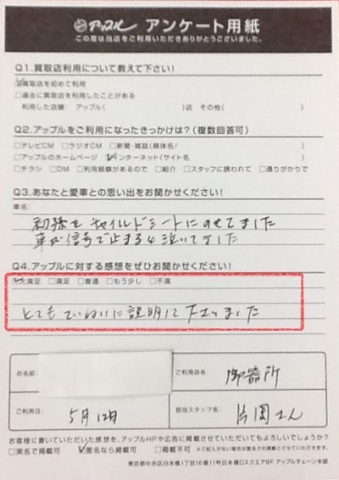 アップル アンケート用紙
この度は当店をご利用いただきありがとうございました。
Q1.買取店利用について教えて下さい!
☑買取店を初めて利用
□過去に買取店を利用したことがある
利用した店舗: アップル( )店 その他( )
Q2.アップルをご利用になったきっかけは?(複数回答可)
□テレビCM □ラジオCM □新聞・雑誌(媒体名/ )
□アップルのホームページ ☑インターネット(サイト名 )
□チラシ □DM □利用経験があるので □紹介 □スタッフに誘われて □通りがかりで
Q3.あなたと愛車との思い出をお聞かせください!
車名:
初孫をチャイルドシートにのせてました
車が信号で止まると泣いてました
Q4.アップルに対する感想をぜひお聞かせください!
☑大満足 □満足 □普通 □もう少し □不満
とてもていねいに説明して下さいました
お名前:
ご利用店名: 御器所
ご利用日: 5月12日
担当スタッフ名: 片岡さん
お客様に書いていただいた感想を、アップルHPや広告に掲載させていただいてもよろしいでしょうか?
□実名で掲載可 ☑匿名なら掲載可 □掲載不可 ※ご記入がない場合は匿名で掲載とさせていただきます。
東京都中央区日本橋1丁目16番11号日本橋DスクエアBF アップルチェーン本部